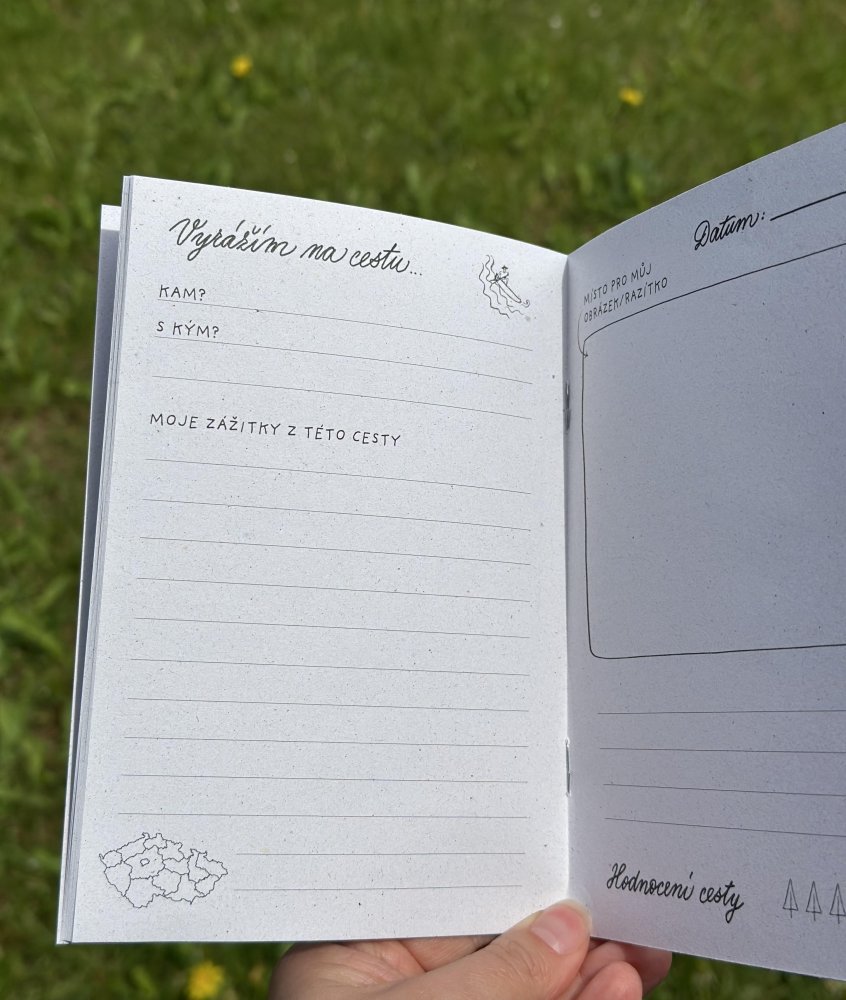 Vyrážím na cestu...
KAM?
S KÝM?
MOJE ZÁŽITKY Z TÉTO CESTY
Datum:
MÍSTO PRO MŮJ
OBRÁZEK/RAZÍTKO
Hodnocení cesty